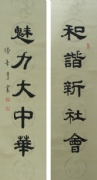 和諧新社會
魅力大中華